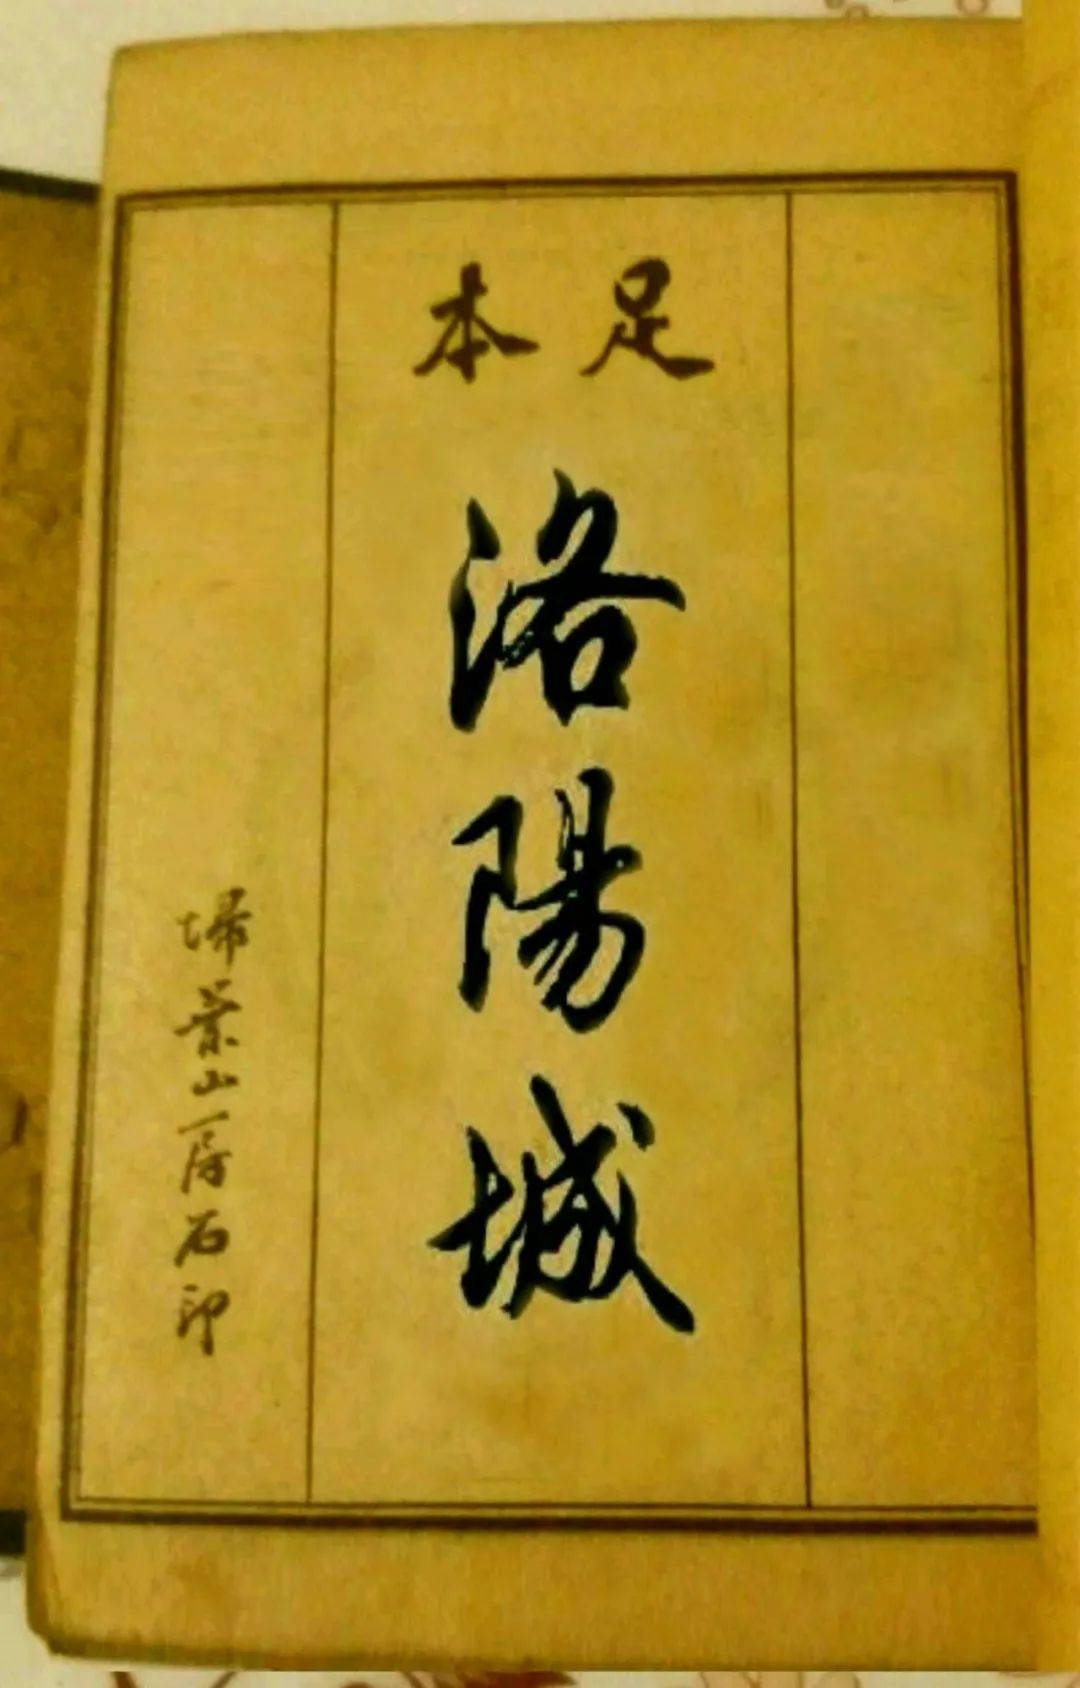 足本
洛陽城
掃葉山房石印